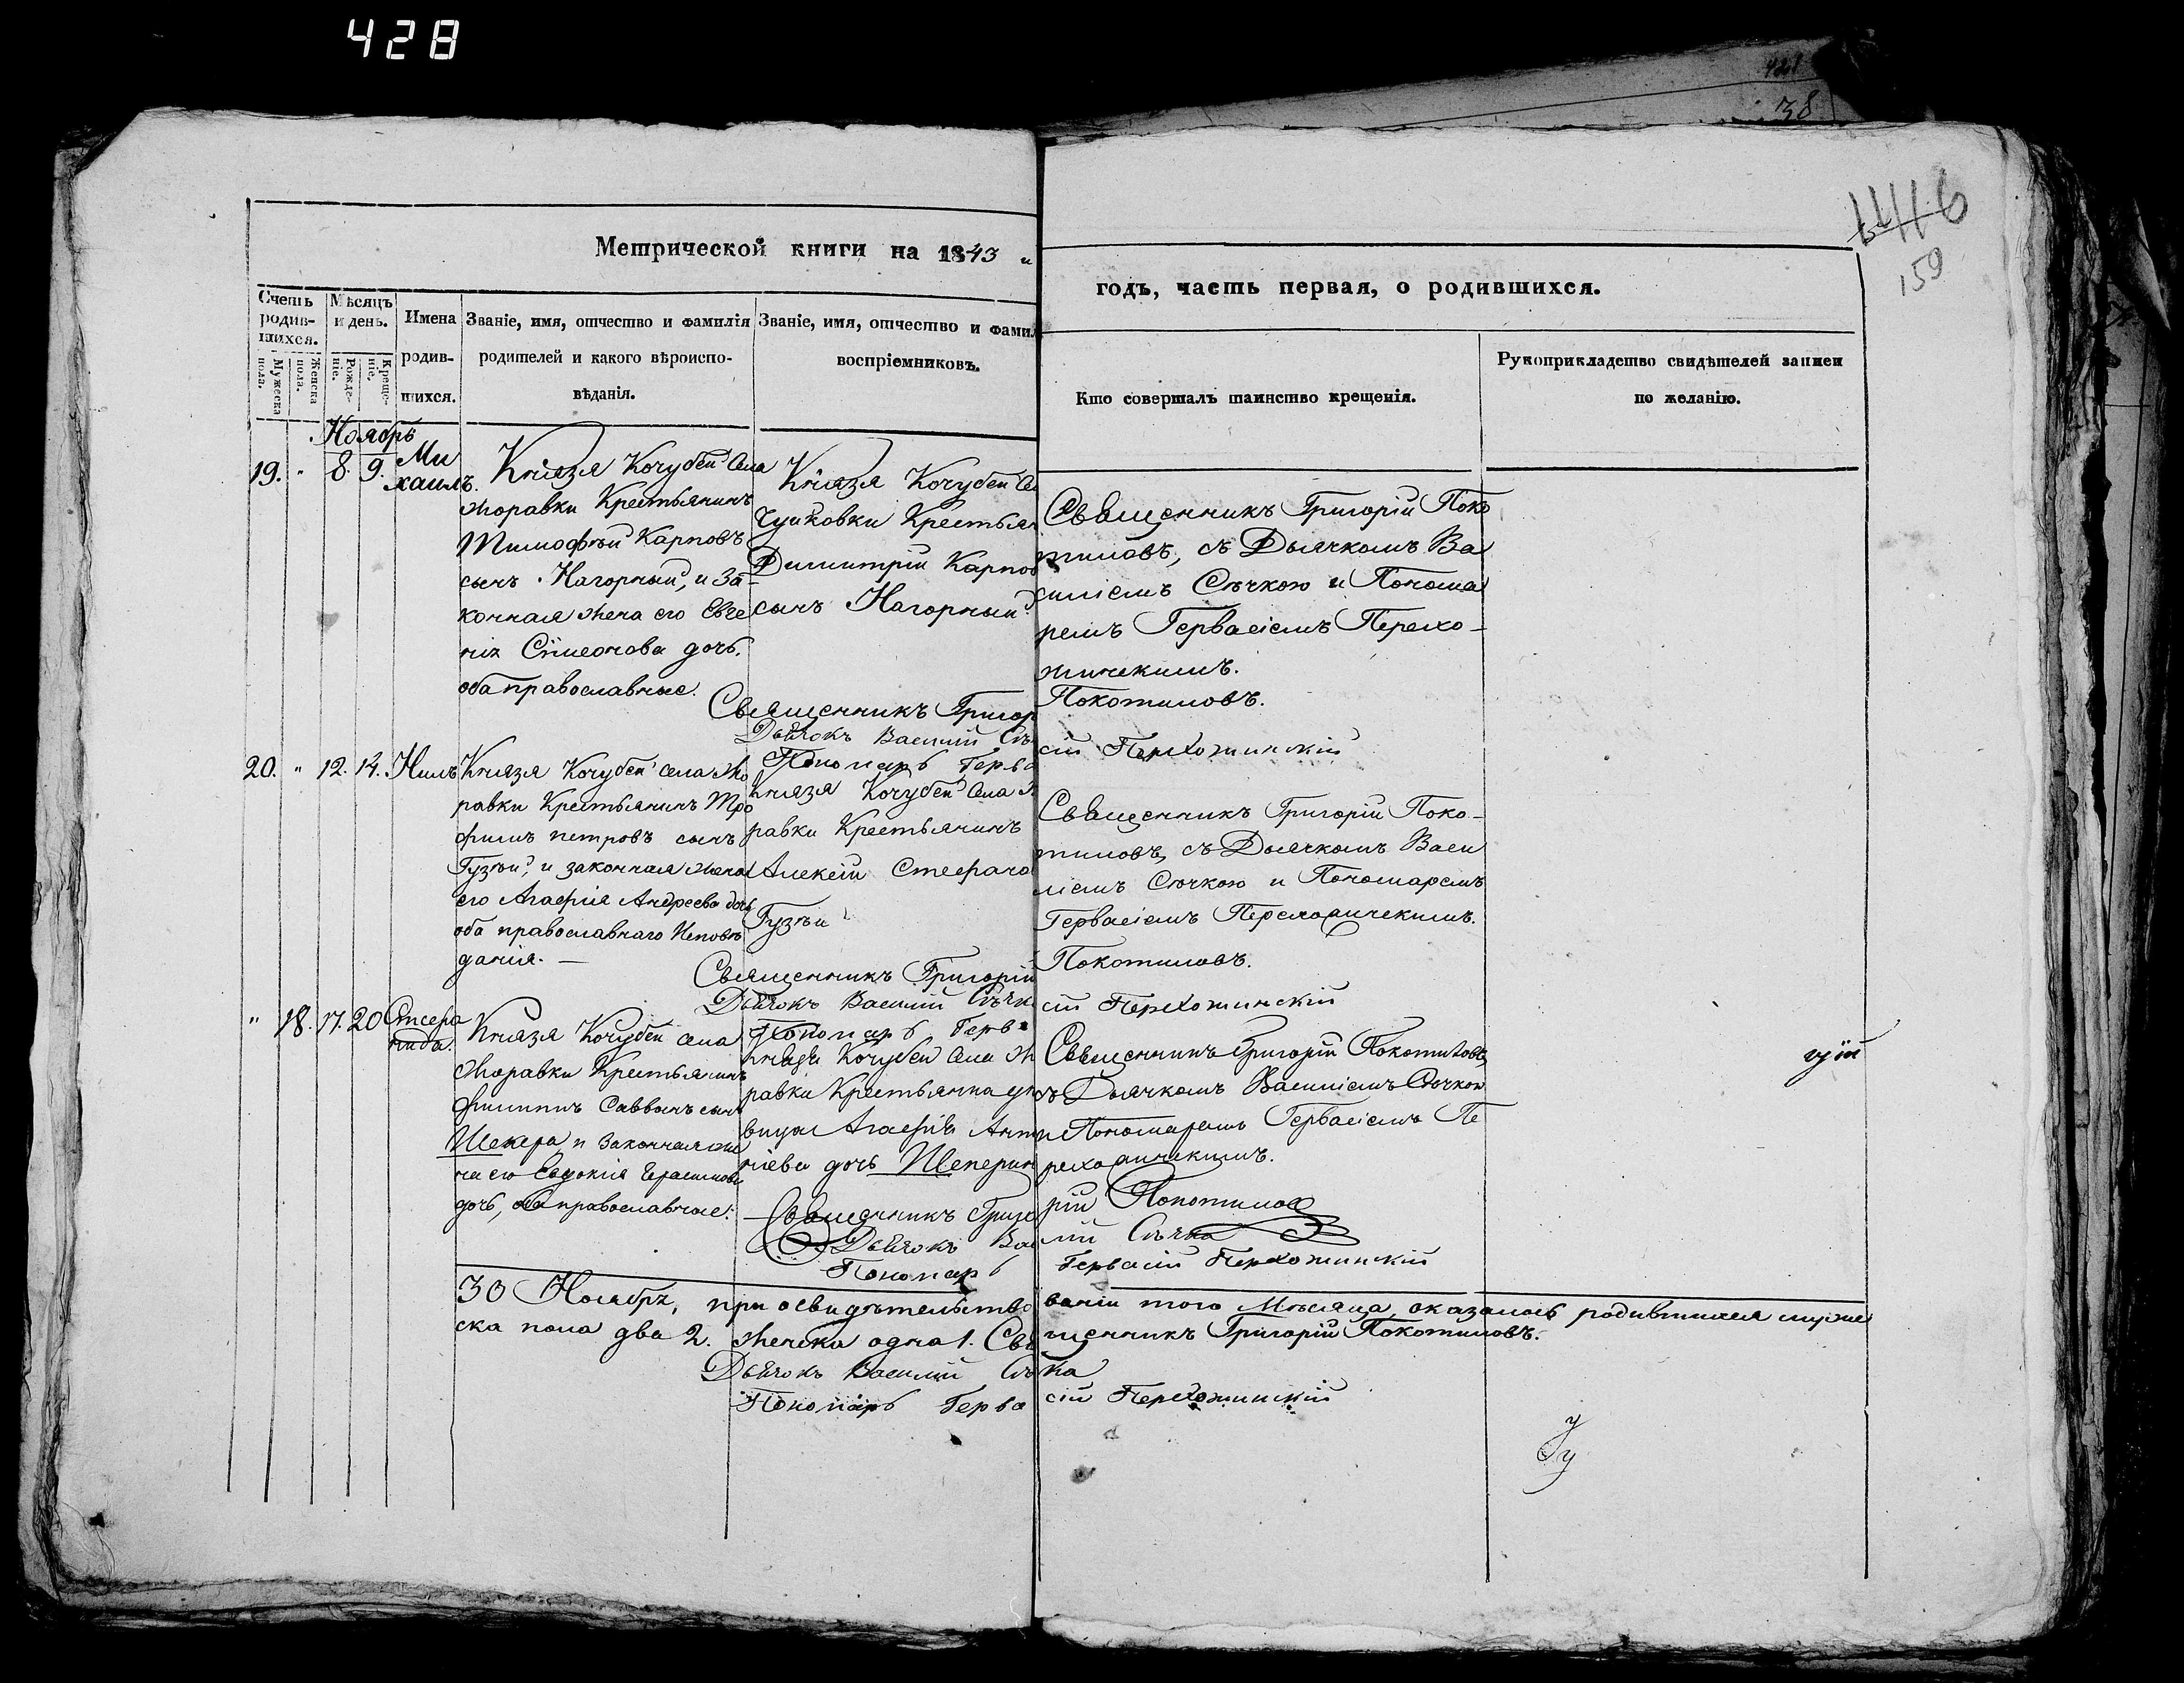 428
421
38
446
159
Метрической книги на 1843
годъ, часть первая, о родившихся.
Счетъ родившихся.
Мужеска пола.
Женска пола.
Мѣсяцъ и день.
Рожденіе.
Крещеніе.
Имена родившихся.
Званіе, имя, отчество и фамилія
родителей и какого вѣроиспо-
вѣданія.
Званіе, имя, отчество и фамил
воспріемниковъ.
Кто совершалъ таинство крещенія.
Рукоприкладство свидѣтелей записи
по желанію.
Ноябрь
19. " 8. 9.
Ми
хаилъ.
Князя Кочубей села
Жоравки Крестьянинъ
Тимофѣй Карповъ
сынъ Нагорный, и за-
конная жена его Евге
нія Симеонова дочь.
оба православные.
Князя Кочубей се
Чуйковки Крестьян
Димитрій Карпов
сынъ Нагорный
Священникъ Григорій Поко
тиловъ, съ Дьячкомъ Ва
силіемъ Сѣчкою и Понома
ремъ Гервасіемъ Перехо-
жинскимъ.
Священникъ Григор
Покотиловъ.
Дьячокъ Василій Сѣ
Пономарь Герва
сій Перехожинскій
20. " 12. 14. Нилъ
Князя Кочубей села Жо
равки Крестьянинъ Тро
фимъ Петровъ сынъ
Гузѣй, и законная жена
его Агафія Андреева дочь
оба православнаго Исповѣ
данія. —
Князя Кочубей села Ж
равки Крестьянинъ
Алексій Стефано
Гузѣй
Священникъ Григорій Поко-
тиловъ, съ Дьячкомъ Васи
ліемъ Сѣчкою и Пономаремъ
Гервасіемъ Перехожинскимъ.
Священникъ Григорій
Покотиловъ.
Дьячокъ Василій Сѣчк
Пономарь Герва
сій Перехожинскій
" 18. 17. 20
Стефа
нида.
Князя Кочубей села
Жоравки Крестьянинъ
Филиппъ Саввинъ сынъ
Шекера и Законная же
на его Евдокія Герасимова
дочь, оба православные.
Князя Кочубей села Ж
равки Крестьянка
вица Агафія Анто
ніева дочь Шекерин
Священникъ Григорій Покотиловъ,
съ Дьячкомъ Василіемъ Сѣчкою
и Пономаремъ Гервасіемъ Пе
рехожинскимъ.
Священникъ Григо
рій Покотиловъ
Дьячокъ Васи
лій Сѣчка
Пономарь
Гервасій Перехожинскій
30 Ноября, при освидѣтельство
ваніи того Мѣсяца оказалось родившихся муже
ска пола два 2. женска одна 1. Свя
щенникъ Григорій Покотиловъ.
Дьячокъ Василій Сѣ
чка
Пономарь Герва
сій Перехожинскій